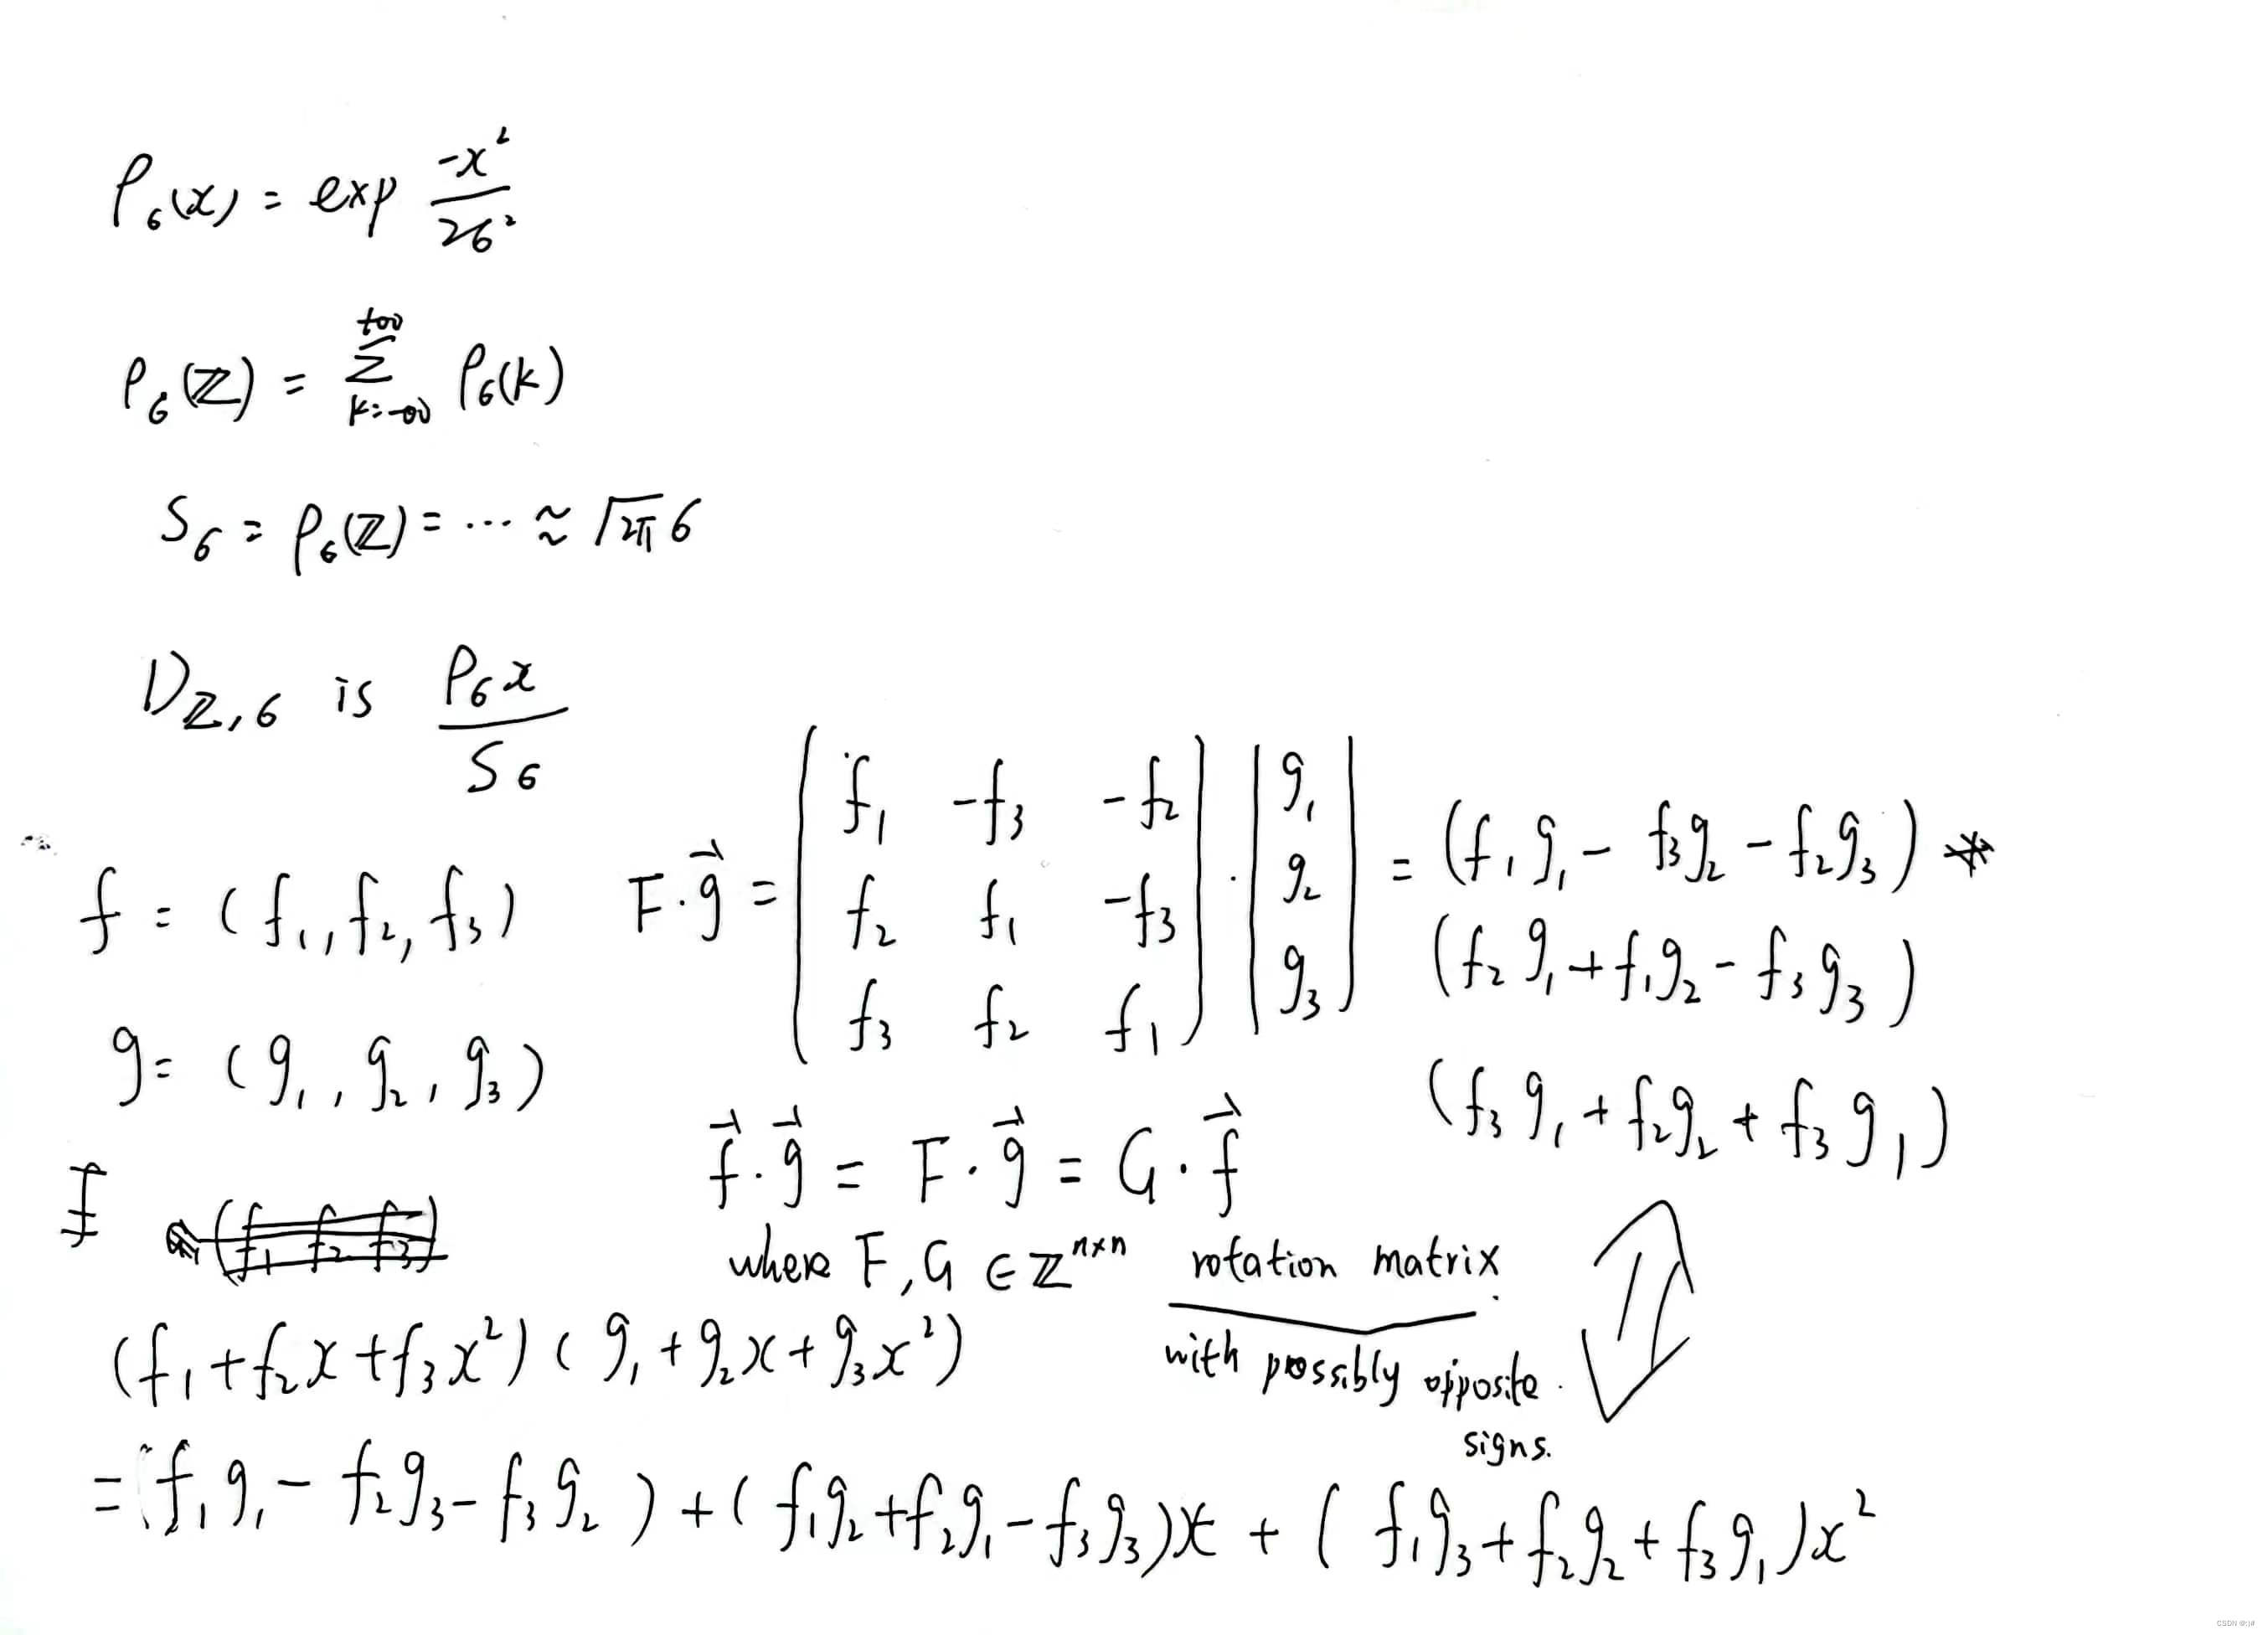 ρσ(x) = exp -x²/2σ²
ρσ(ℤ) = Σ_{k=-∞}^{+∞} ρσ(k)
Sσ = ρσ(ℤ) = ... ≈ √2π σ
D_{ℤ,σ} is ρσ x / Sσ
f = (f₁, f₂, f₃)
g = (g₁, g₂, g₃)
F·g⃗ = ( f₁ -f₃ -f₂ ) · | g₁ | = (f₁g₁ - f₃g₂ - f₂g₃) *
f₂ f₁ -f₃ g₂ (f₂g₁ + f₁g₂ - f₃g₃)
f₃ f₂ f₁ g₃ (f₃g₁ + f₂g₂ + f₃g₁)
f⃗·g⃗ = F·g⃗ = G·f⃗
where F, G ∈ ℤⁿˣⁿ rotation matrix.
with possibly opposite
signs.
(f₁ f₂ f₃)
(f₁ + f₂x + f₃x²) (g₁ + g₂x + g₃x²)
= (f₁g₁ - f₂g₃ - f₃g₂) + (f₁g₂ + f₂g₁ - f₃g₃)x + (f₁g₃ + f₂g₂ + f₃g₁)x²